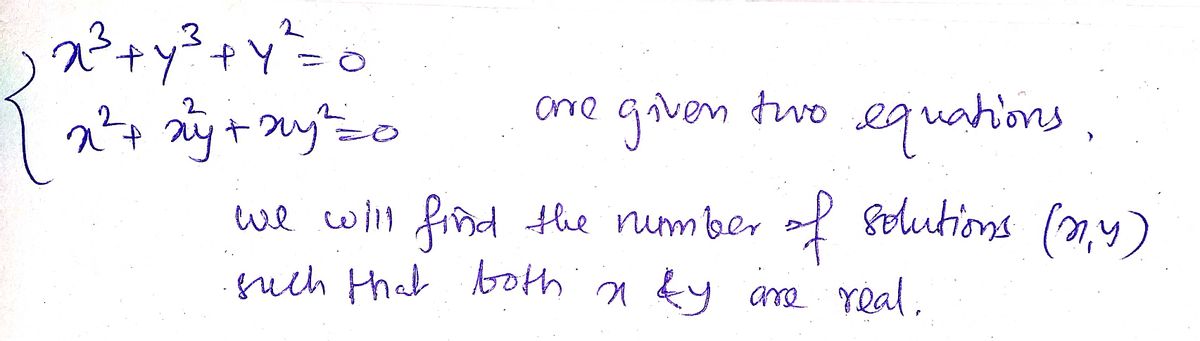 x³+y³+y²=0
x²+x²y+xy²=0 are given two equations,
we will find the number of solutions (x,y)
such that both x & y are real.